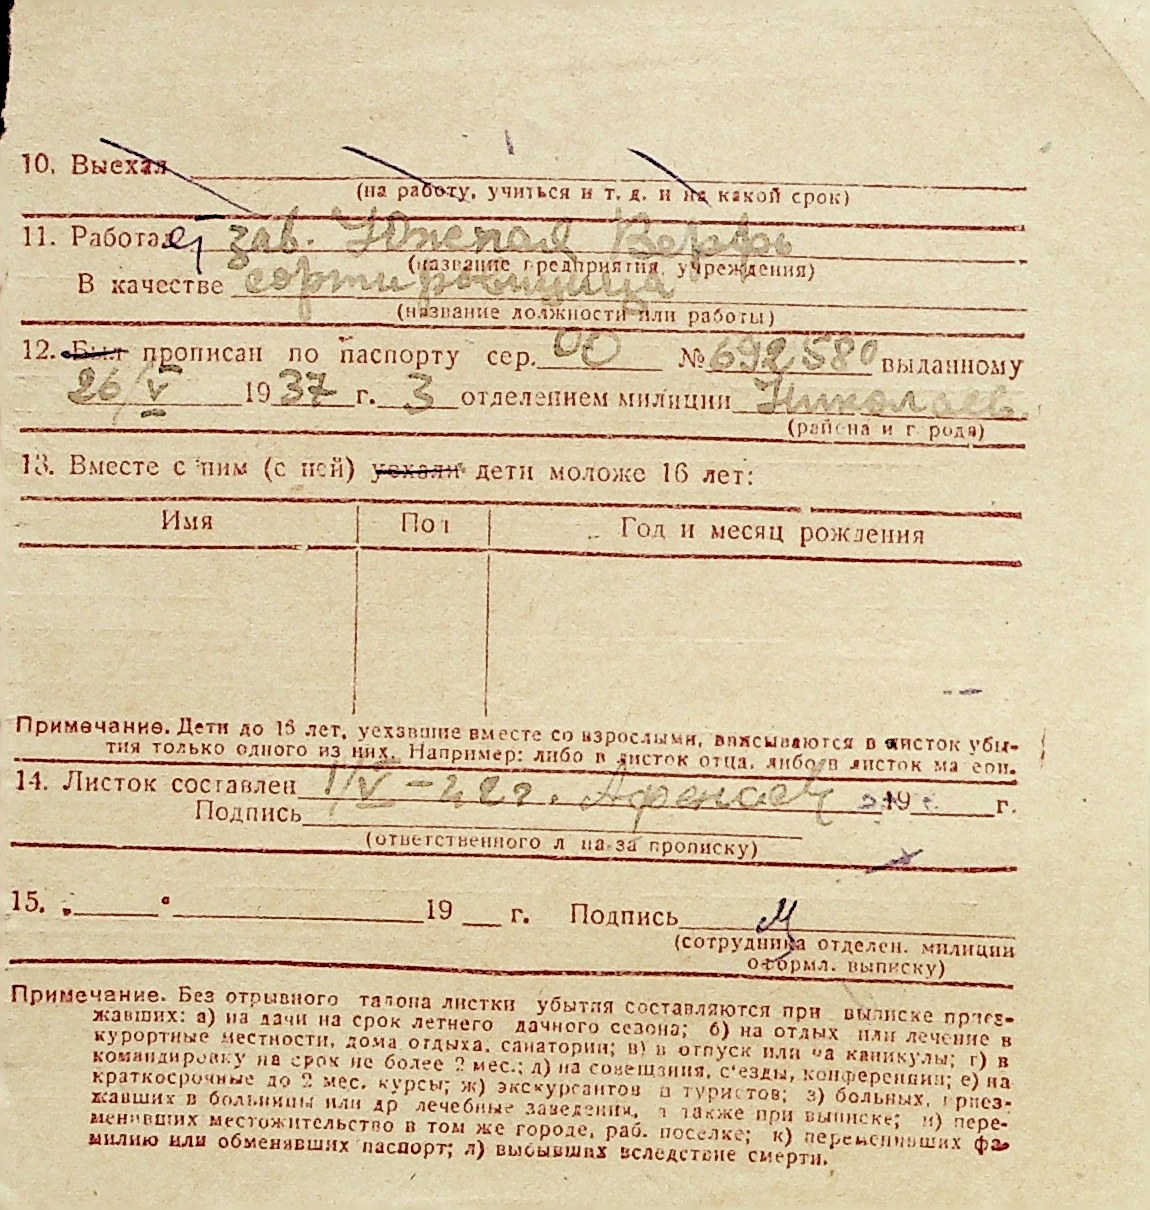 10. Выехал
(на работу, учиться и т. д. и на какой срок)
11. Работает зав. Южская Верфь
(название предприятия, учреждения)
В качестве сортировщица
(название должности или работы)
12. Был прописан по паспорту сер. № 692580 выданному
26/V 1937 г. 3 отделением милиции Николаев
(района и города)
13. Вместе с ним (с ней) уехали дети моложе 16 лет:
Имя Пол Год и месяц рождения
Примечание. Дети до 16 лет, уехавшие вместе со взрослыми, вписываются в листок убы-
тия только одного из них. Например: либо в листок отца, либо в листок матери.
14. Листок составлен 1/V - 42 г. 19 г.
Подпись
(ответственного лица за прописку)
15. 19 г. Подпись
(сотрудника отделен. милиции
оформл. выписку)
Примечание. Без отрывного талона листки убытия составляются при выписке приез-
жавших: а) на дачи на срок летнего дачного сезона; б) на отдых или лечение в
курортные местности, дома отдыха, санатории; в) в отпуск или на каникулы; г) в
командировку на срок не более 2 мес.; д) на совещания, с'езды, конференции; е) на
краткосрочные до 2 мес. курсы; ж) экскурсантов и туристов; з) больных, приез-
жавших в больницы или др лечебные заведения, а также при выписке; и) пере-
менивших местожительство в том же городе, раб. поселке; к) переменивших фа-
милию или обменявших паспорт; л) выбывших вследствие смерти.